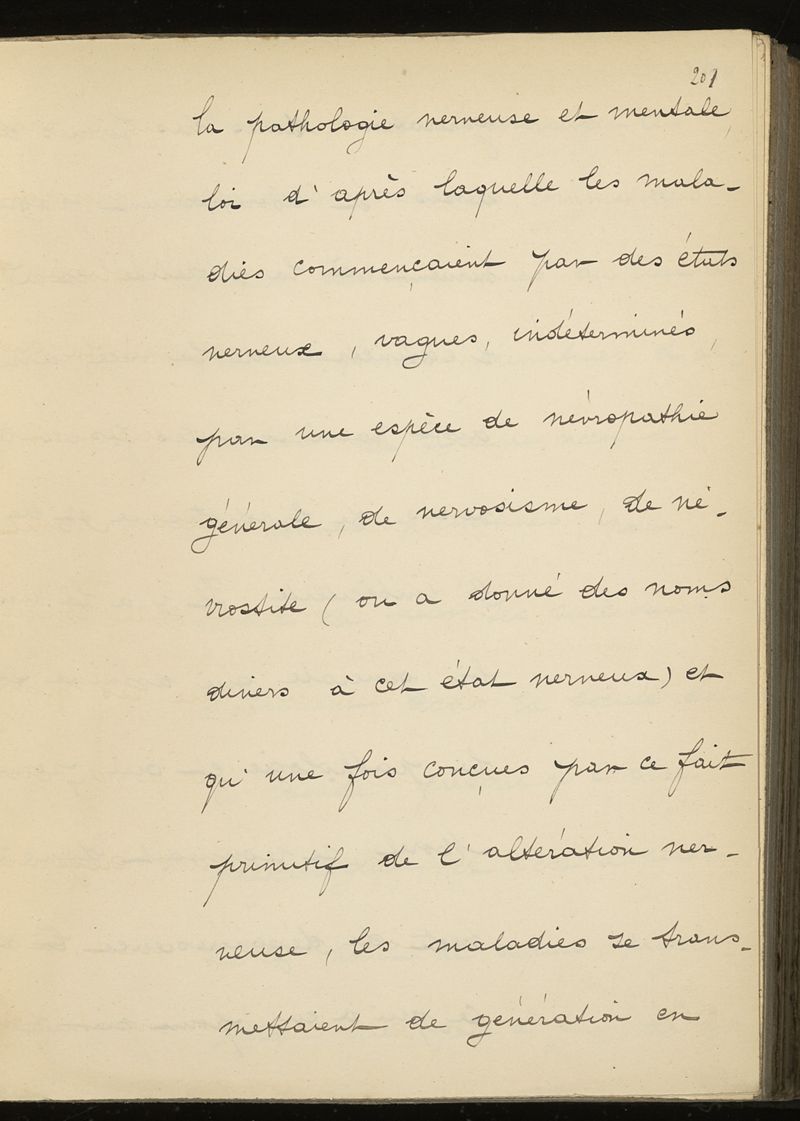 201
la pathologie nerveuse et mentale,
loi d'après laquelle les mala-
dies commençaient par des états
nerveux, vagues, indéterminés,
par une espèce de névropathie
générale, de nervosisme, de né-
vrostite (on a donné des noms
divers à cet état nerveux) et
qu'une fois conçues par ce fait
primitif de l'altération ner-
veuse, les maladies se trans-
mettaient de génération en